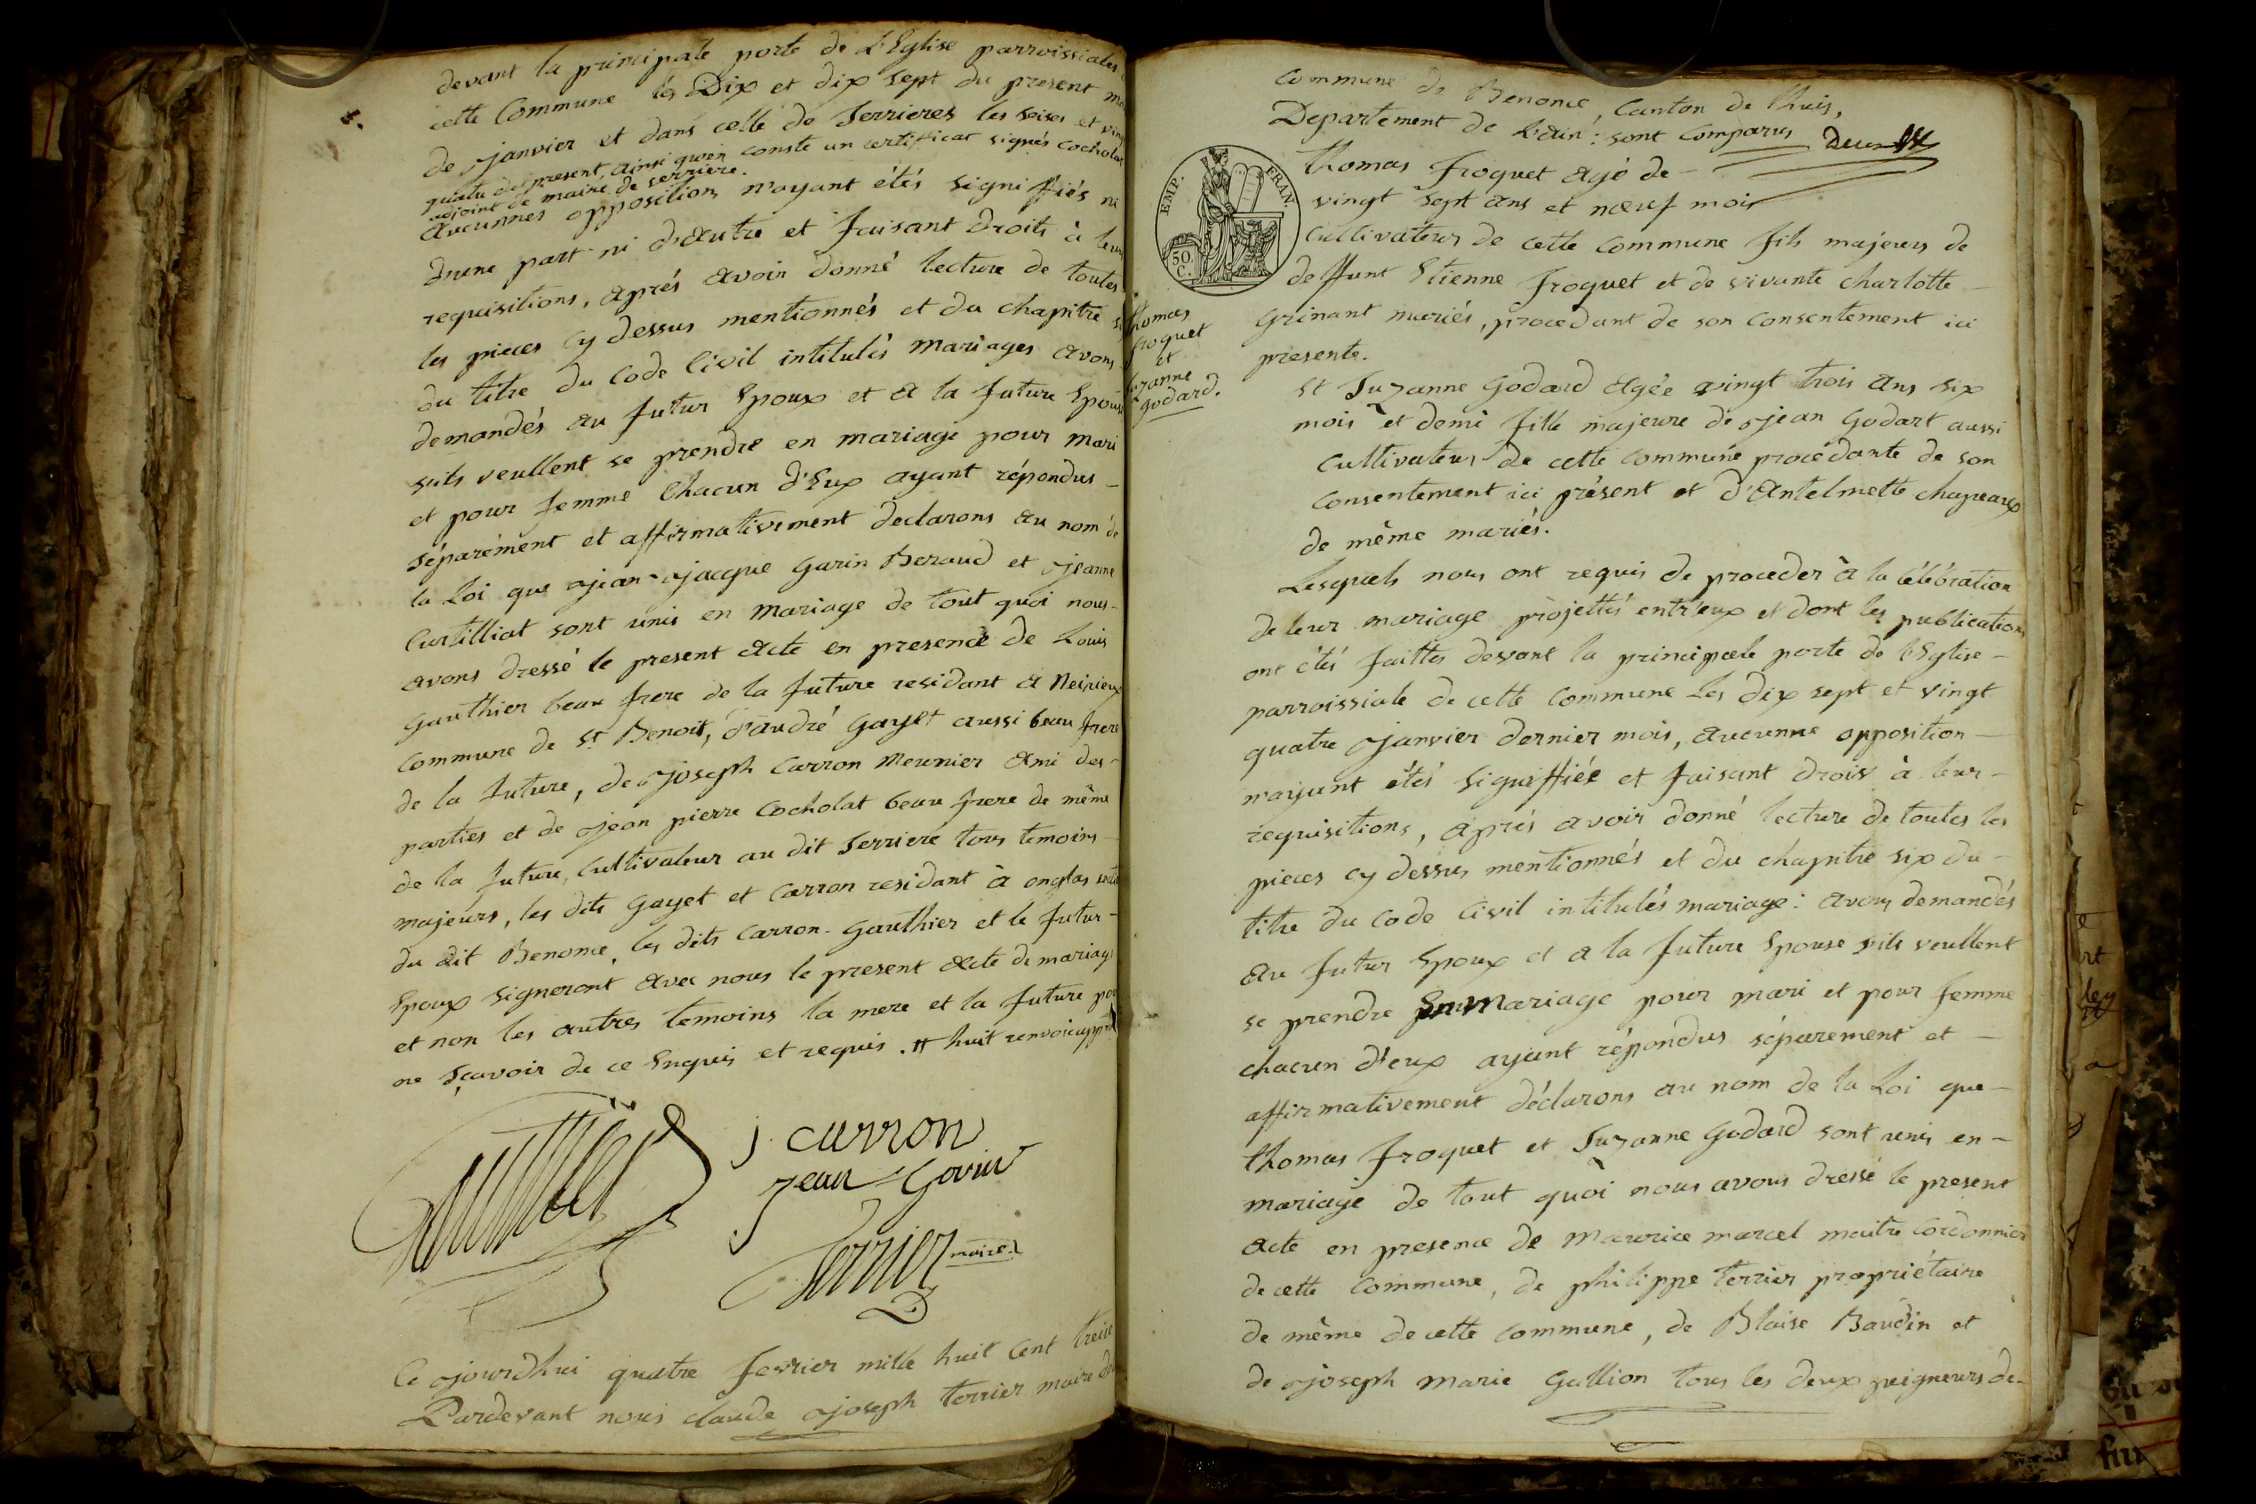 devant la principale porte de L'Eglise parroissiales
cette Commune les Dix et dix sept du present
de janvier et dans celle de Serrieres les seises et
quatre de present, ainsi qu'en conste un certifficat signés Cocholat
adjoint de maire de serriere.
Aucunnes opposition n'ayant étés signiffiés ni
d'une part ni d'autre et faisant droits à leur
requisitions, après avoir donné lecture de toutes
les pieces cy dessus mentionnés et du chapitre
du titre du Code Civil intitulés mariages avons
demandés au futur Epoux et a la future Epouse
suits veullent se prendre en mariage pour mari
et pour femme Chacun d'Eux ayant répondus
séparément et affirmativement declarons au nom de
la Loi que jean-jacque Garin Beraud et jeanne
Curtilliat sont unis en mariage de tout quoi nous
avons dressé le present acte en presence de Louis
Gauthier beau frere de la future residant a Neirieux
Commune de St Benoit, d'andré Gayet aussi beau frere
de la future, de joseph Carron Meunier ami des
parties et de jean pierre Cocholat beau frere de même
de la future, Cultivateur au dit Serriere tous temoins
majeurs, les dits Gayet et Carron residant à onglas
du dit Benonce, les dits Carron-Gauthier et le futur
Epoux signeront avec nous le present acte de mariage
et non les autres temoins la mere et la future pour
ne sçavoir de ce Enquis et requis. huit renvoi
Gauthier
j. carron
jean Garin
Terrier maire.
Ce jourd'hui quatre fevrier mille huit Cent treize
Pardevant nous claude joseph terrier maire de
Commune de Benonce, Canton de Lhuis,
Departement de L'ain: sont Comparus
EMP. FRAN.
50. C.
thomas
froquet
et
suzanne
godard.
thomas froquet agé de
vingt sept ans et noeuf mois
cultivateur de cette Commune fils majeur de
deffunt Etienne froquet et de vivante charlotte
Grinant mariés, procedant de son consentement ici
presente.
et Suzanne Godard agée vingt trois ans six
mois et demi fille majeure de jean Godart aussi
cultivateur de cette commune procédante de son
consentement ici présent et d'Antelmette chapeaux
de même mariés.
Lesquels nous ont requis de proceder à la célébration
de leur mariage projettés entr'eux et dont les publications
ont étés faittes devant la principale porte de l'Eglise
parroissiale de cette Commune Les dix sept et vingt
quatre janvier dernier mois, aucunne opposition
n'ayant étés signiffiée et faisant droit à leur
requisitions, après avoir donné lecture de toutes les
pieces cy dessus mentionnés et du chapitre six du
titre du code Civil intitulés mariage: avons demandés
au futur Epoux et a la future Epouse sils veullent
se prendre En mariage pour mari et pour femme
chacun d'eux ayant répondus séparement et
affirmativement déclarons au nom de la Loi que
thomas froquet et Suzanne Godard sont unis en
mariage de tout quoi nous avons dressé le present
acte en presence de maurice marcel maitre Cordonnier
de cette Commune, de philippe terrier propriétaire
de même de cette commune, de Blaise Baudin et
de joseph marie Gallion tous les deux peigneurs de